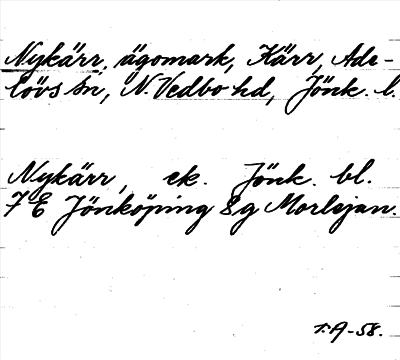 Nykärr, ägomark, Kärr, Ade-
lövs sn, N. Vedbo hd, Jönk. l.
Nykärr, ek. Jönk. bl.
7E Jönköping 8g Morlejan.
T.A-58.